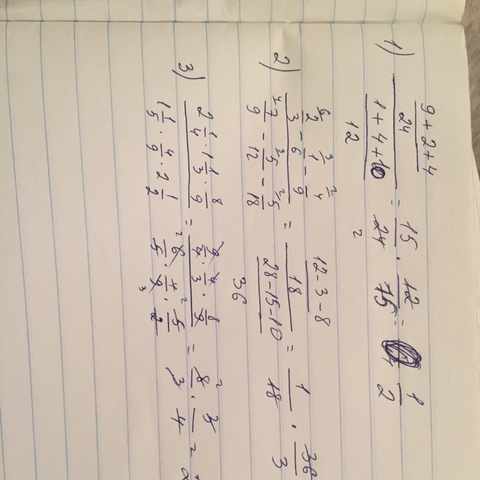 1) \frac{\frac{9+2+4}{24}}{\frac{1+4+10}{12}} = \frac{15}{24} · \frac{12}{15} = \frac{1}{2}
2) \frac{\frac{2}{3} - \frac{1}{6} - \frac{4}{9}}{\frac{7}{9} - \frac{5}{12} - \frac{5}{18}} = \frac{\frac{12-3-8}{18}}{\frac{28-15-10}{36}} = \frac{1}{18} · \frac{36}{3}
3) \frac{2\frac{1}{4} · 1\frac{1}{3} · \frac{8}{9}}{1\frac{1}{5} · \frac{4}{9} · 2\frac{1}{2}} = \frac{\frac{9}{4} · \frac{4}{3} · \frac{8}{9}}{\frac{6}{5} · \frac{4}{9} · \frac{5}{2}} = \frac{8}{3} · \frac{3}{4} =